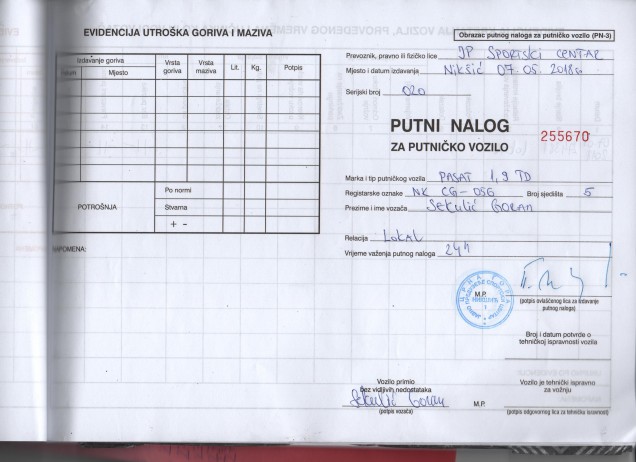 EVIDENCIJA UTROŠKA GORIVA I MAZIVA
Izdavanje goriva
Datum
Mjesto
Vrsta goriva
Vrsta maziva
Lit.
Kg.
Potpis
POTROŠNJA
Po normi
Stvarna
+ -
NAPOMENA:
Obrazac putnog naloga za putničko vozilo (PN-3)
Prevoznik, pravno ili fizičko lice JP SPORTSKI CENTAR
Mjesto i datum izdavanja NIKŠIĆ 07.05.2018g
Serijski broj 020
PUTNI NALOG
255670
ZA PUTNIČKO VOZILO
Marka i tip putničkog vozila PASAT 1,9 TD
Registarske oznake NK CG-056 Broj sjedišta 5
Prezime i ime vozača SEKULIĆ GORAN
Relacija LOKAL
Vrijeme važenja putnog naloga 24h
M.P.
(potpis ovlašćenog lica za izdavanje
putnog naloga)
Broj i datum potvrde o
tehničkoj ispravnosti vozila
Vozilo primio
bez vidljivih nedostataka
Sekulić Goran
(potpis vozača)
M.P.
Vozilo je tehnički ispravno
za vožnju
(potpis odgovornog lica za tehničku ispravnost)